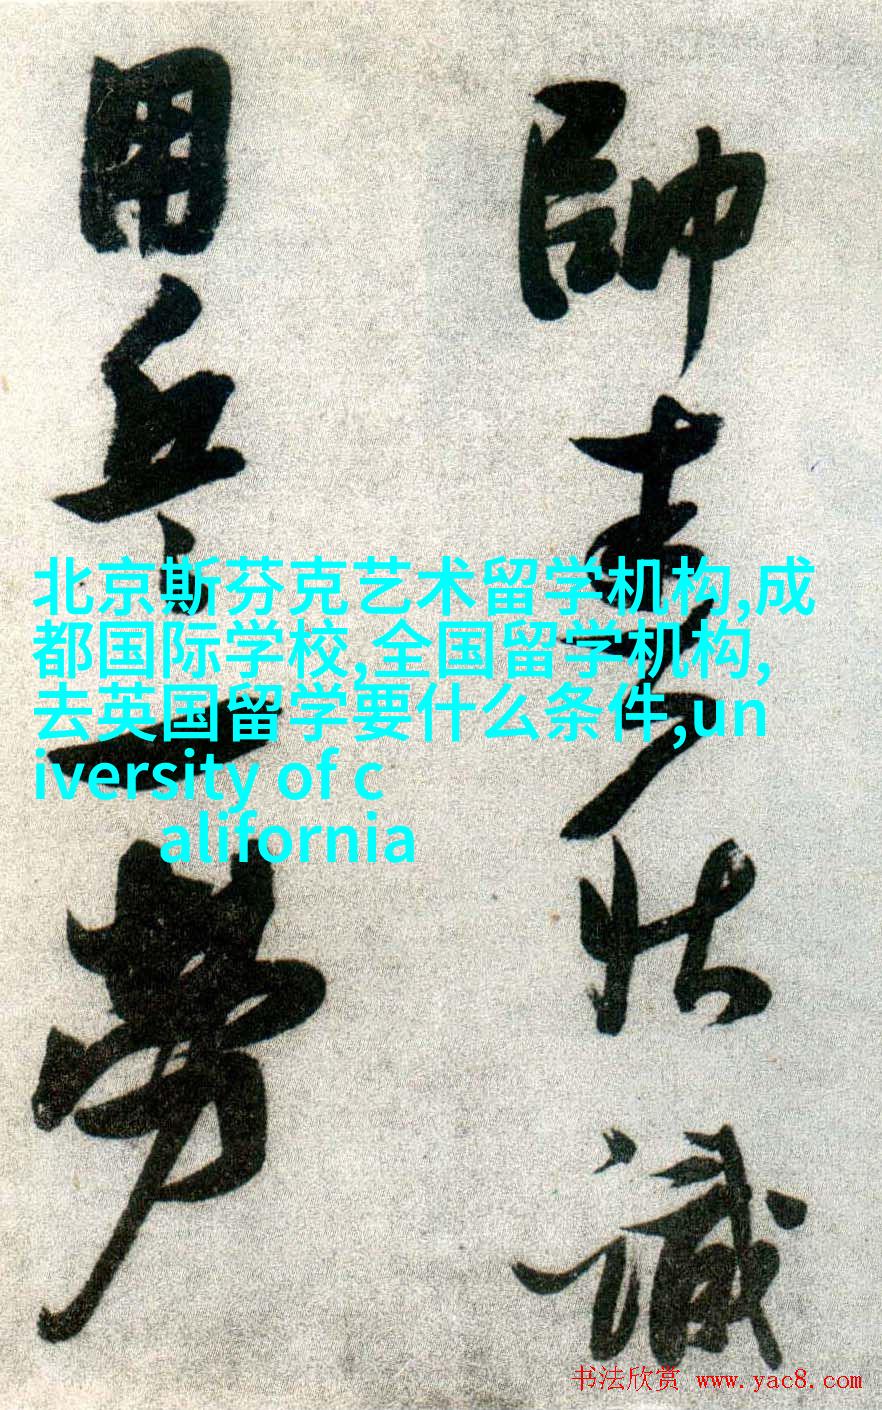 帥 識
用兵一勞
北京斯芬克艺术留学机构,成
都国际学校,全国留学机构,
去英国留学要什么条件,un
iversity of c
alifornia
书法欣赏 www.yac8.com